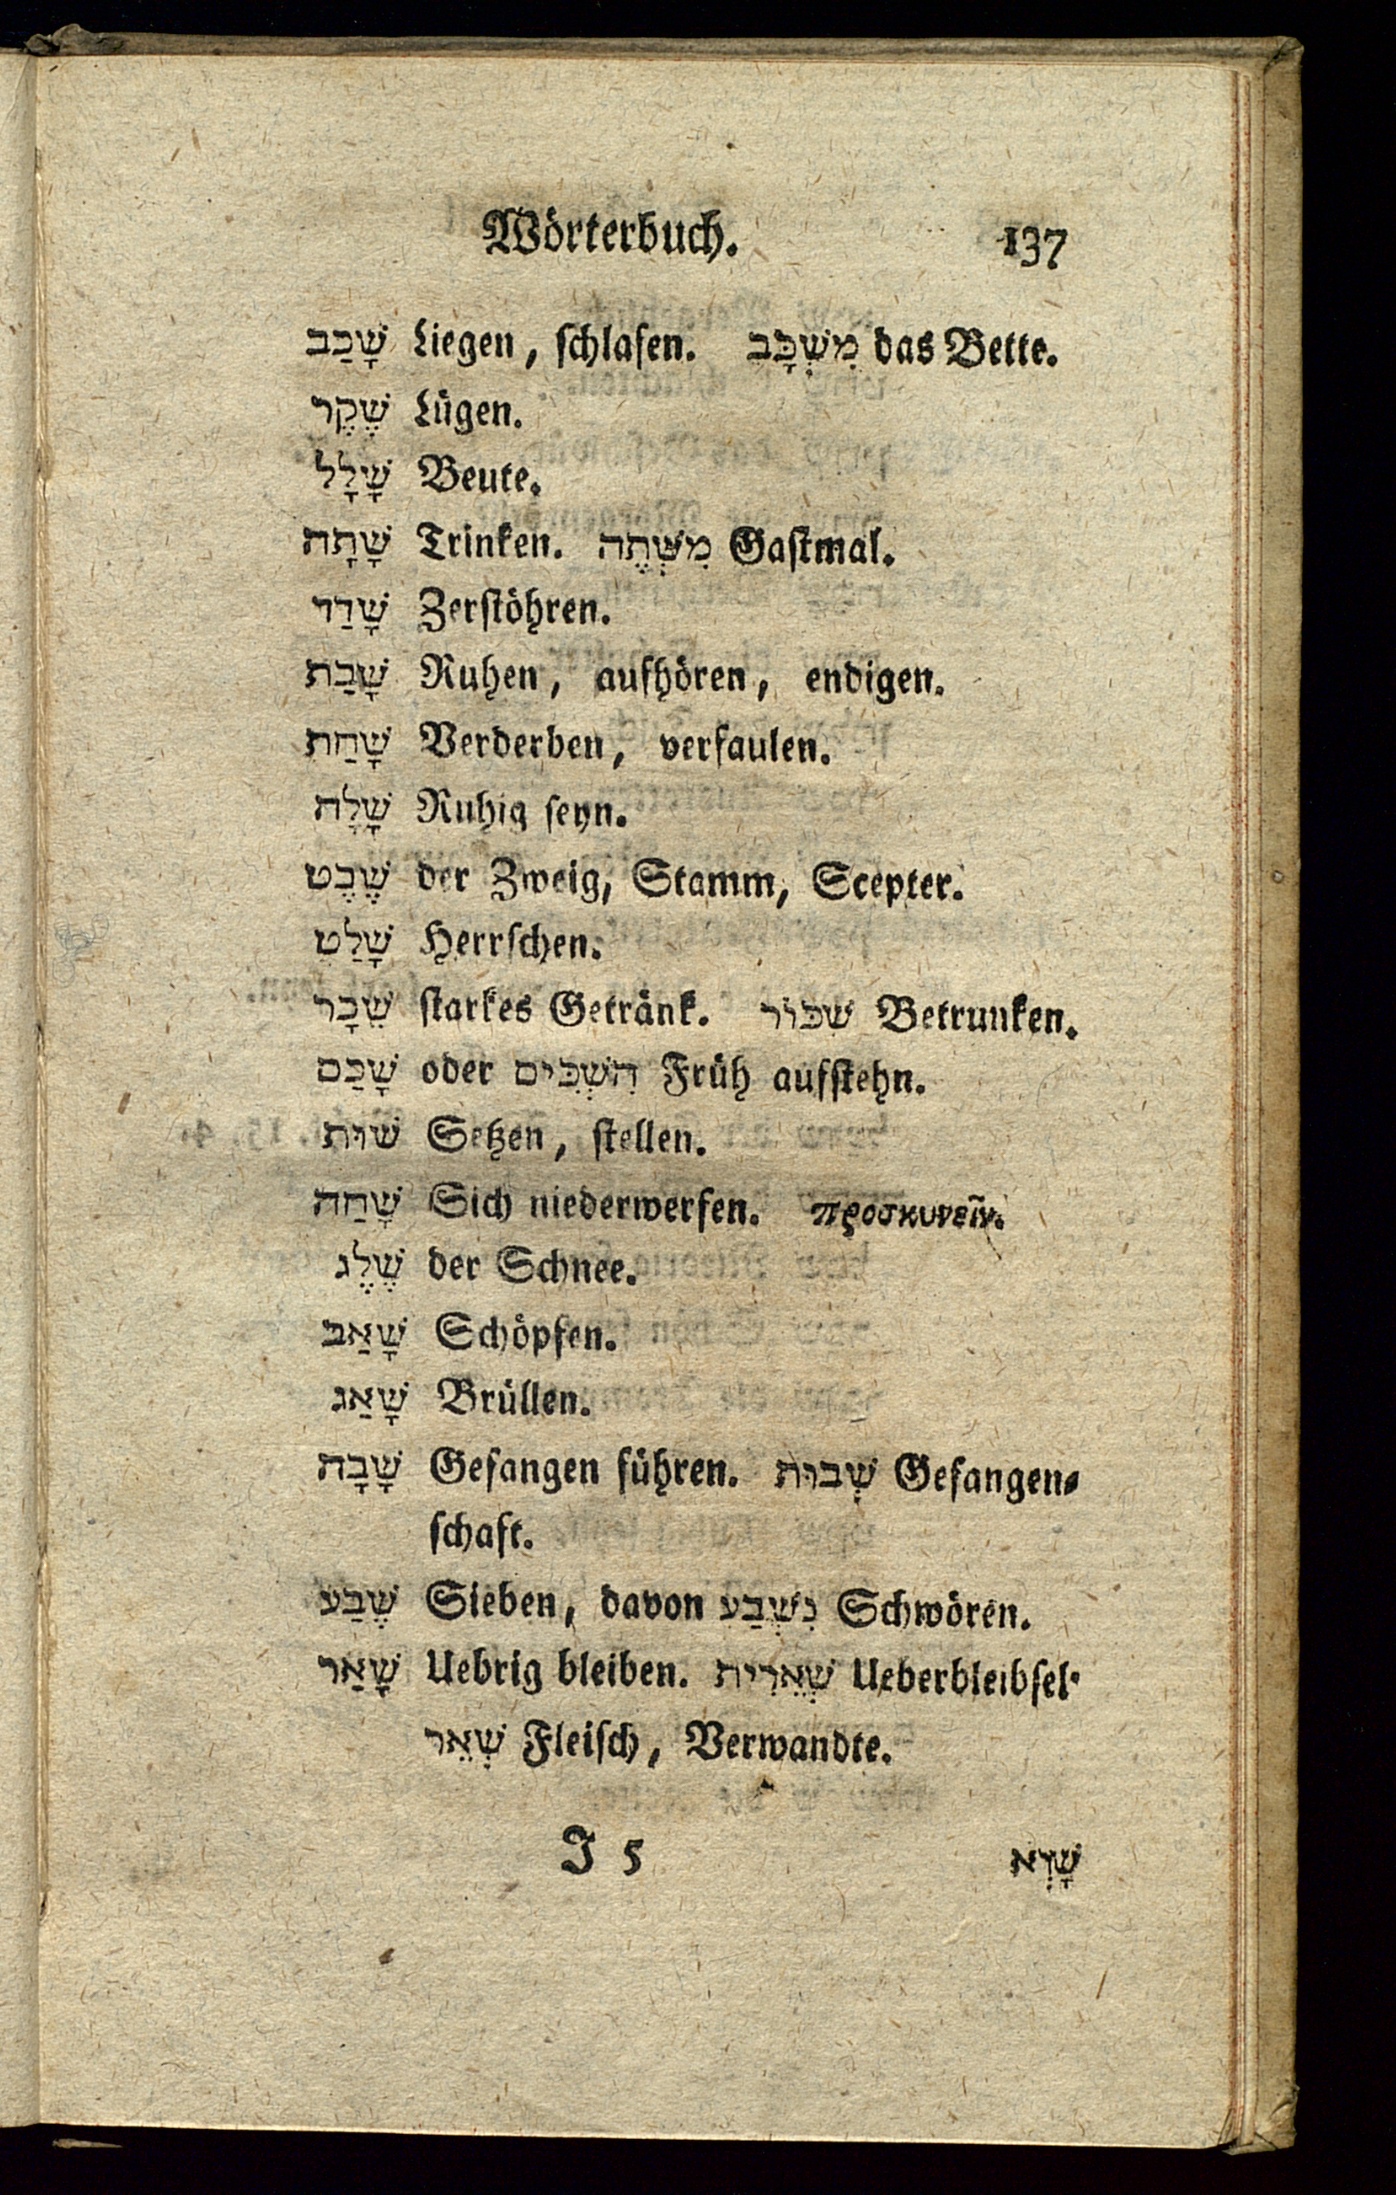 Wörterbuch. 137
שָׁכַב Liegen, schlafen. מִשְׁכָּב das Bette.
שֶׁקֶר Lügen.
שָׁלָל Beute.
שָׁתָה Trinken. מִשְׁתֶּה Gastmal.
שָׁדַד Zerstöhren.
שָׁבַת Ruhen, aufhören, endigen.
שָׁחַת Verderben, verfaulen.
שָׁלָה Ruhig seyn.
שֶׁבֶט der Zweig, Stamm, Scepter.
שָׁלַט Herrschen.
שֵׁכָר starkes Getränk. שִׁכּוֹר Betrunken.
שָׁכַם oder הִשְׁכִּים Früh aufstehn.
שׁוּת Setzen, stellen.
שָׁחַה Sich niederwerfen. προσκυνεῖν.
שֶׁלֶג der Schnee.
שָׁאַב Schöpfen.
שָׁאַג Brüllen.
שָׁבָה Gefangen führen. שְׁבוּת Gefangen⸗
schaft.
שֶׁבַע Sieben, davon נִשְׁבַּע Schwören.
שָׁאַר Uebrig bleiben. שְׁאֵרִית Ueberbleibsel·
שְׁאֵר Fleisch, Verwandte.
J 5 שָׁוְא